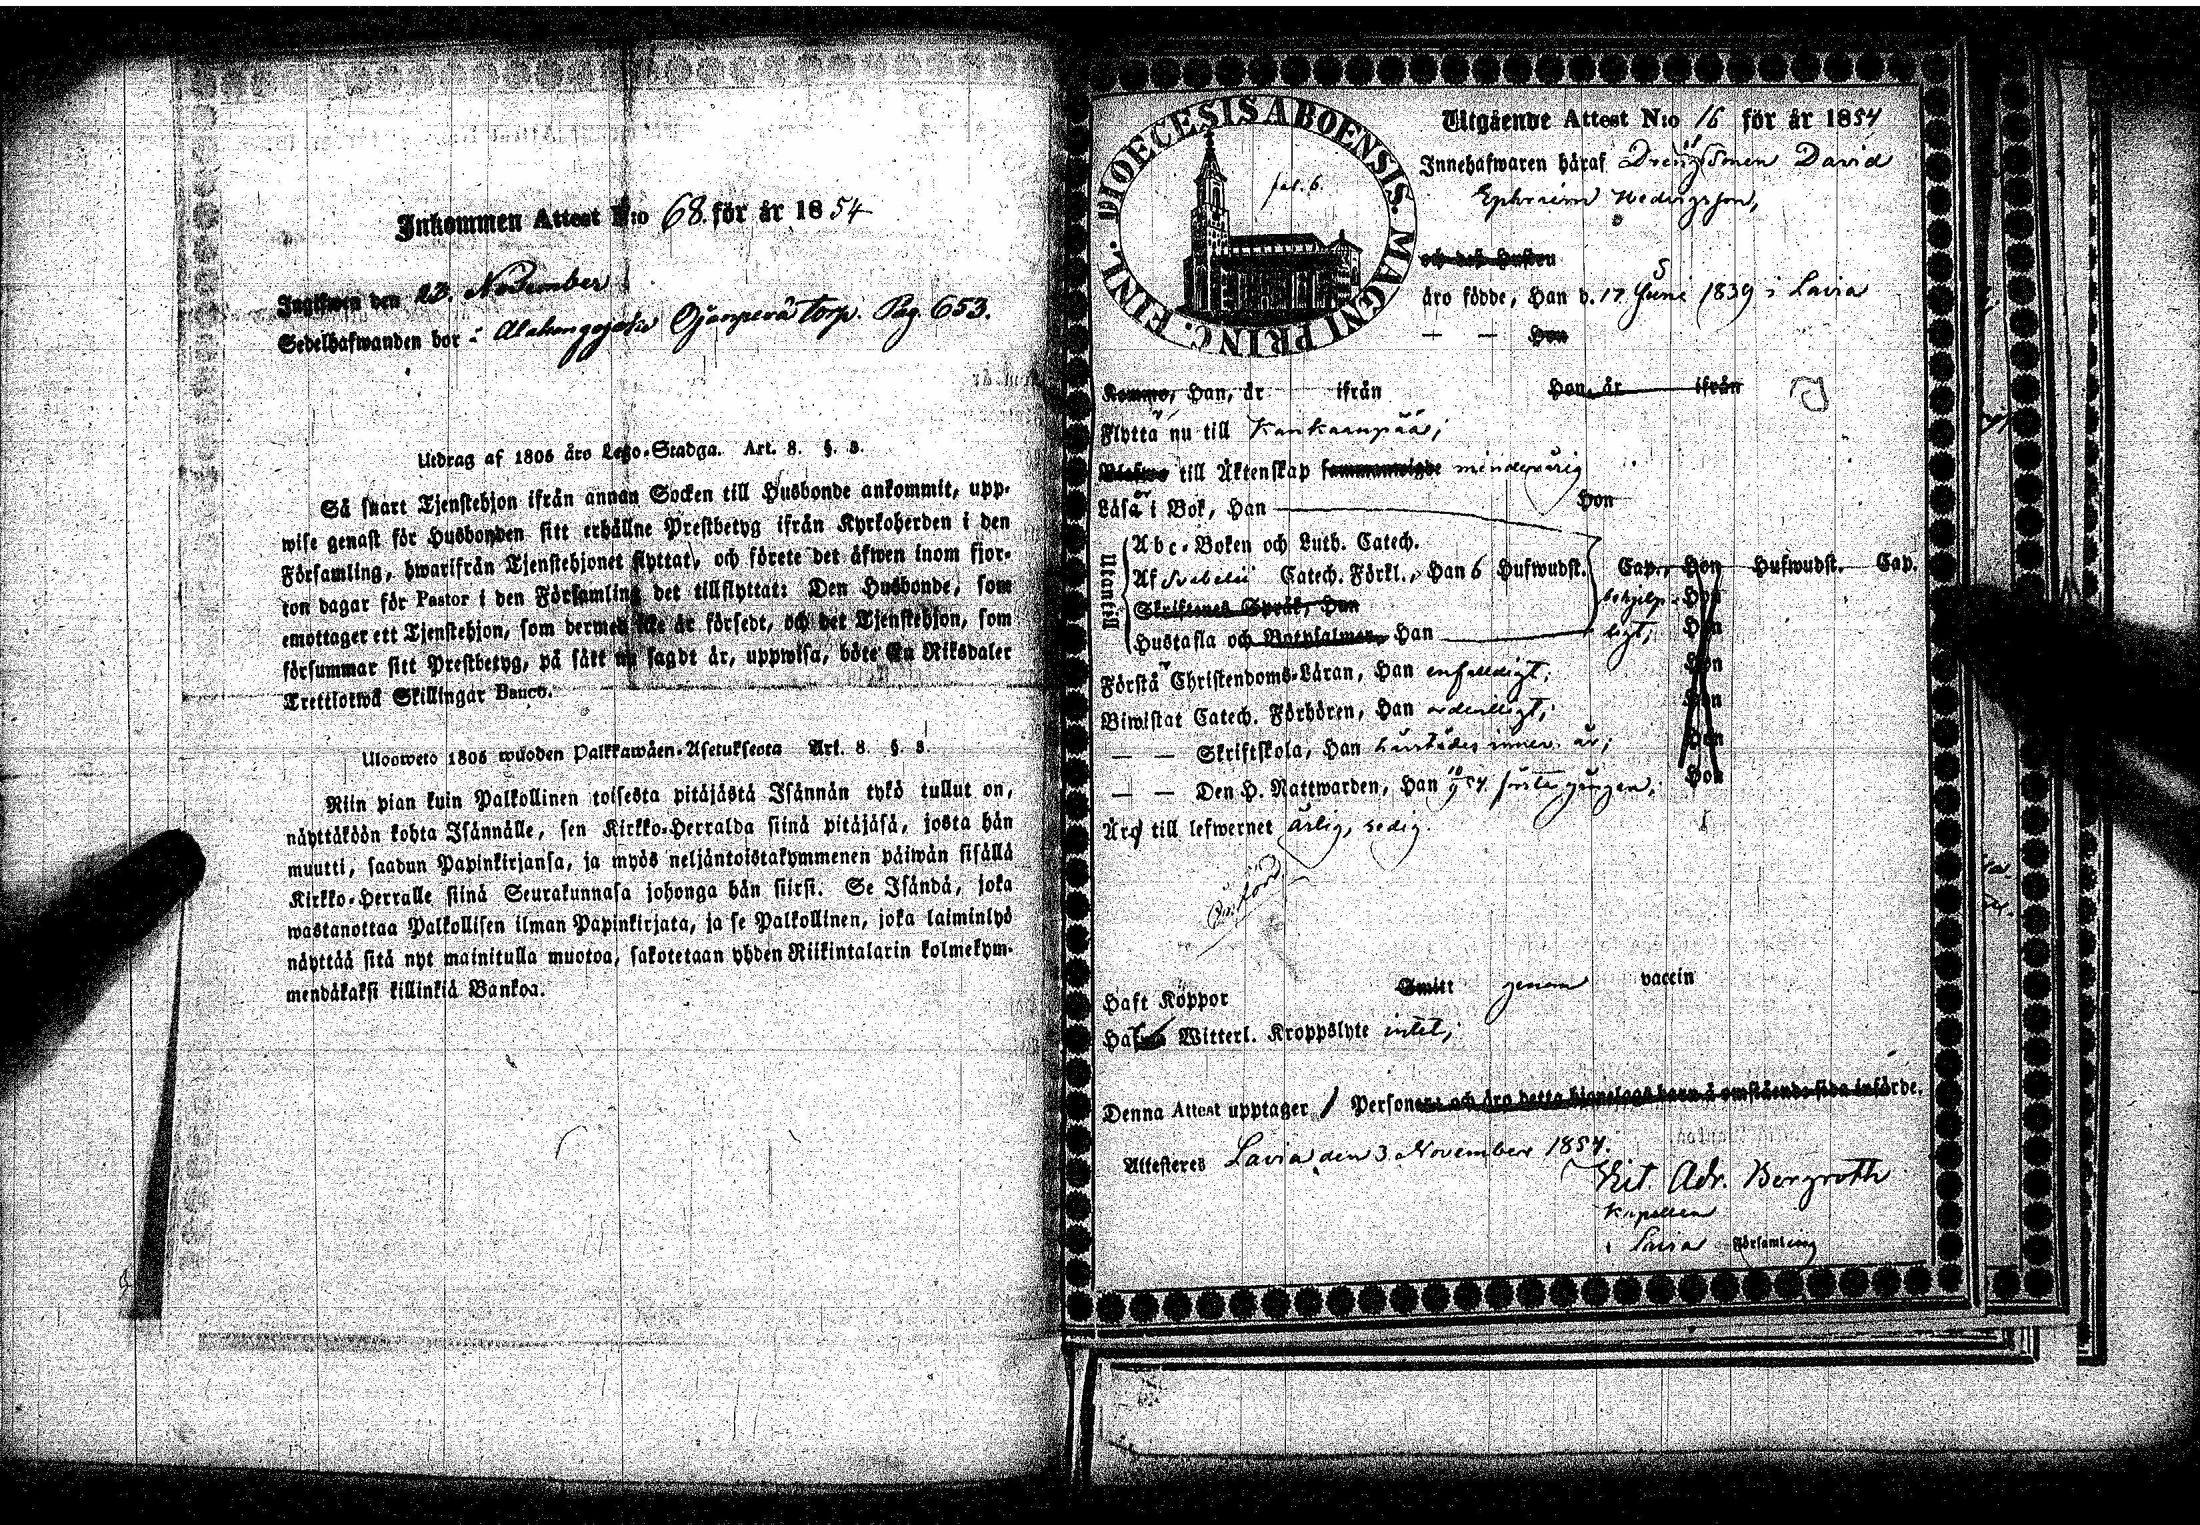 Inkommen Attest N:o 68. för år 1854
Ingifwen den 23. November
Sedelhafwanden bor i torp. Pag. 653.
Utdrag af 1805 års Lego-Stadga. Art. 8. §. 3.
Så snart Tjenstehjon ifrån annan Socken till Husbonde ankommit, upp-
wise genast för Husbonden sitt erhållne Prestbetyg ifrån Kyrkoherden i den
Församling, hwarifrån Tjenstehjonet flyttat, och förete det äfwen inom fjor-
ton dagar för Pastor i den Församling det tillflyttat: Den Husbonde, som
emottager ett Tjenstehjon, som dermed icke är försedt, och det Tjenstehjon, som
försummar sitt Prestbetyg, på sätt nu sagdt är, uppwisa, böte En Riksdaler
Trettiotwå Skillingar Banco.
Ulosweto 1805 wuoden Palkkawäen-Asetuksesta Art. 8. §. 3.
Niin pian kuin Palkollinen toisesta pitäjästä Isännän tykö tullut on,
näyttäköön kohta Isännälle, sen Kirkko-Herralda siinä pitäjäsä, josta hän
muutti, saadun Papinkirjansa, ja myös neljäntoistakymmenen päiwän sisällä
Kirkko-Herralle siinä Seurakunnasa johonga hän siirsi. Se Isändä, joka
wastanottaa Palkollisen ilman Papinkirjata, ja se Palkollinen, joka laiminlyö
näyttää sitä nyt mainitulla muotoa, sakotetaan yhden Riikintalarin kolmekym-
mendäkaksi killinkiä Bankoa.
FINL. DIOECESIS ABOENSIS. MAGNI PRINC.
pal. 6.
Utgående Attest N:o 16 för år 1854
Innehafwaren häraf David
Ephraim
och dess Hustru
äro födde, Han d. 17 Juni 1839 i Lavia
— — Hon
Kommo, Han, år ifrån Hon, år ifrån
Flytta nu till Kankaanpää;
till Äktenskap sammanwigde minderårig
Läsa i Bok, Han Hon
Utantill
Abc-Boken och Luth. Catech.
Af Svebelii Catech. Förkl., Han 6 Hufwudst. Cap., Hon Hufwudst. Cap.
Skriftenes Språk, Han behjelp- Hon
Hustafla och Botpsalmer, Han ligt; Hon
Förstå Christendoms-Läran, Han enfaldigt; Hon
Biwistat Catech. Förhören, Han ordentligt; Hon
— — Skriftskola, Han härstädes innev. år; Hon
— — Den H. Nattwarden, Han 10/9 54 första gången. Hon
Äro till lefwernet ärlig, sedig.
Haft Koppor Smitt genom vaccin
Witterl. Kroppslyte intet;
Denna Attest upptager 1 Personer och äro detta hjonelags barn å omstående sida införde.
Attesteres Lavia den 3. November 1854.
Vit. Adr. Bergroth
Kapellan
i Lavia Församling